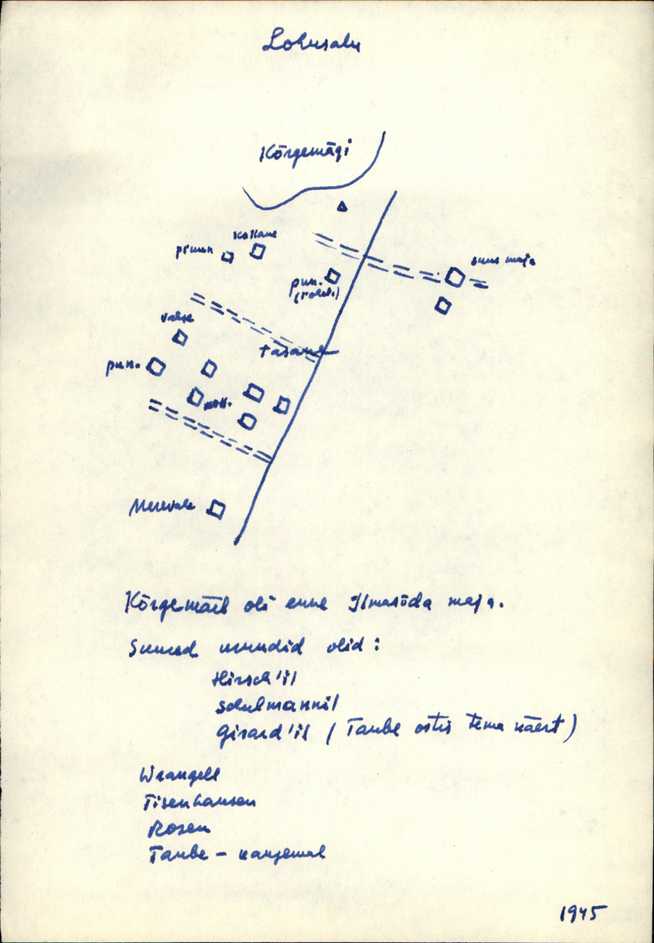 Lohusalu
Kõrgemägi
kollane
pimen
suur maja
pun.
valge
tasane
pun.
koll.
Merevala
Kõrgemäel oli enne Ilmasõda maja.
Suured krundid olid:
Hirsch'il
Schulmannil
Girard'il (Taube ostis tema käest)
Wrangell
Tisenhausen
Rosen
Taube - kaugemal
1945